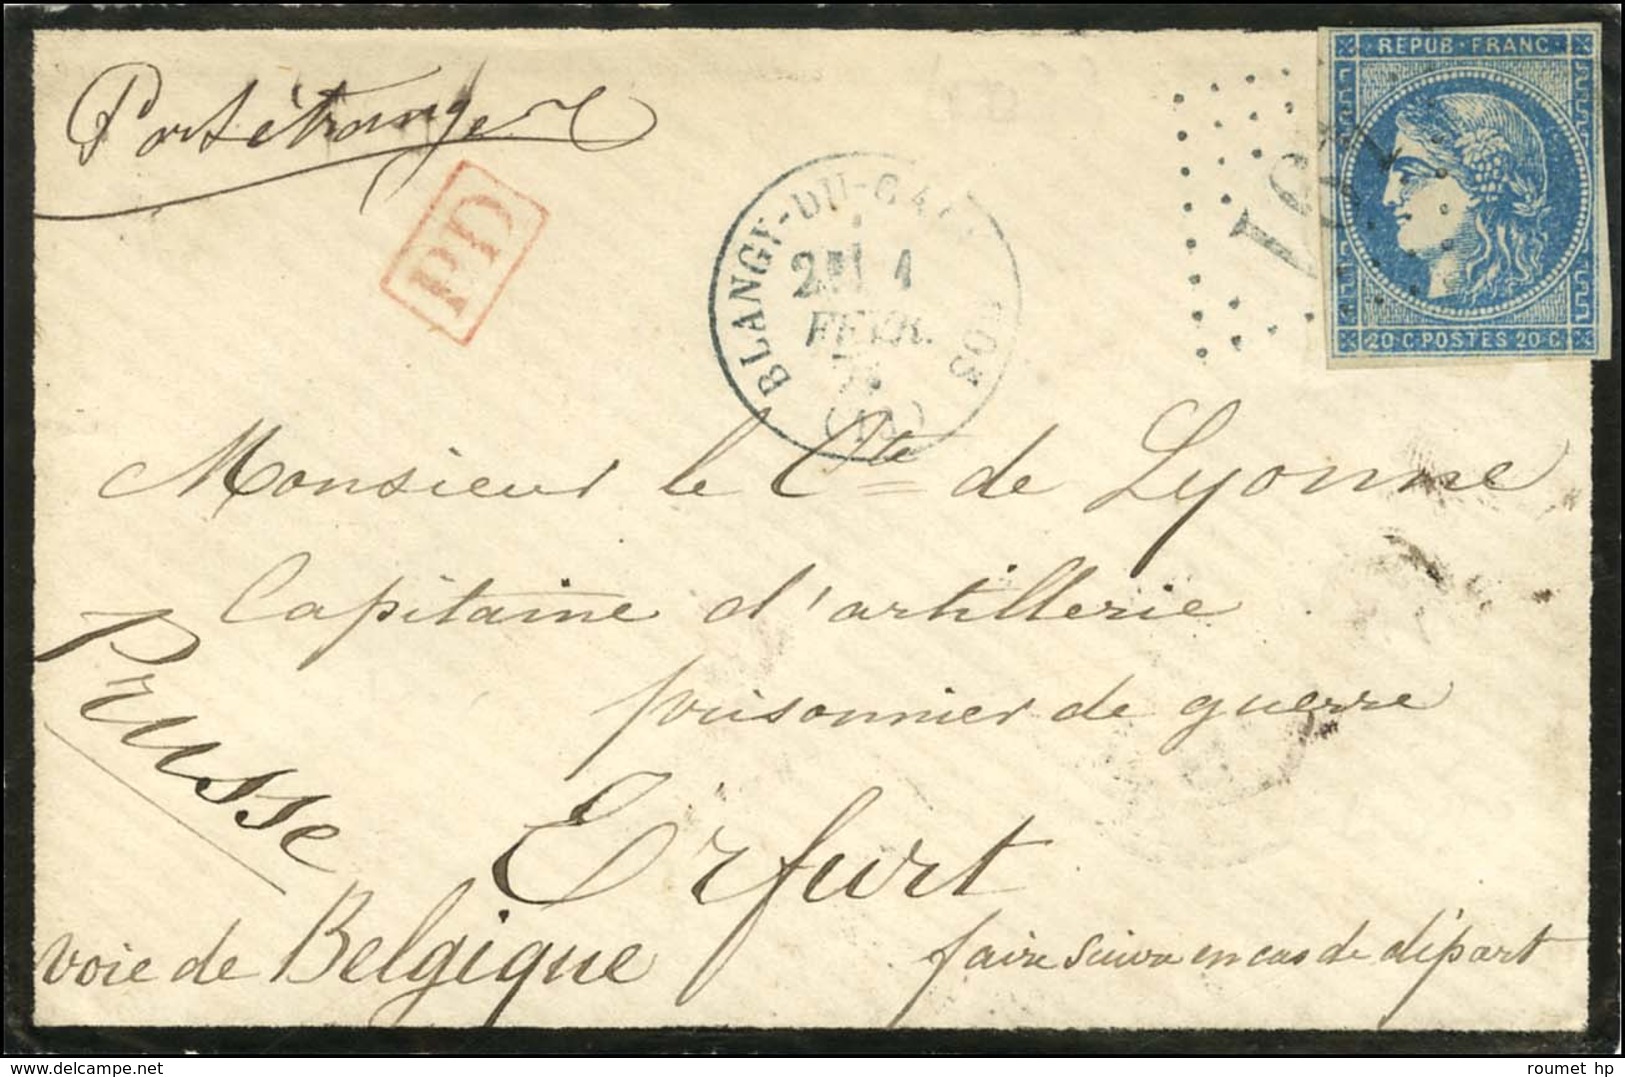 Port étranger
PD
BLANGY-DU-CAL
2E 1
FEVR.
(13)
REPUB·FRANC
20 C·POSTES 20·C
Monsieur le Cte de Lyonne
Capitaine d'artillerie
prisonnier de guerre
Erfurt
Prusse
voie de Belgique
faire suivre en cas de départ
www.delcampe.net
roumet hp